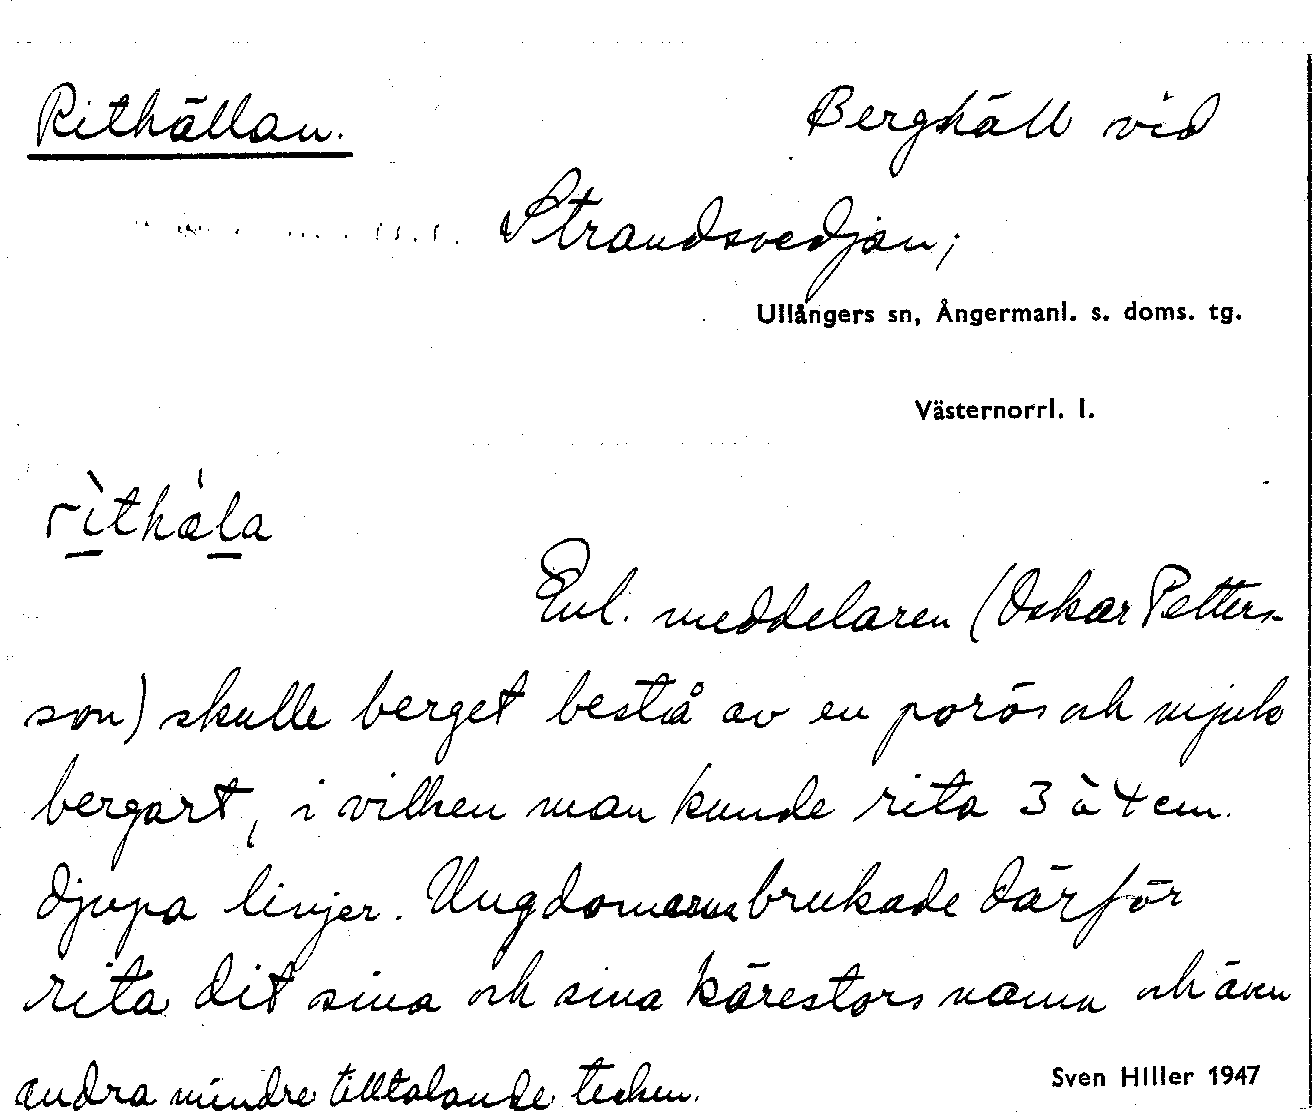 Rithällan. Berghäll vid
Strandsvedjan;
Ullångers sn, Ångermanl. s. doms. tg.
Västernorrl. l.
rìthàla
Enl. meddelaren (Oskar Petters-
son) skulle berget bestå av en porös och mjuk
bergart, i vilken man kunde rita 3 à 4 cm.
djupa linjer. Ungdomarna brukade därför
rita dit sina och sina kärestors namn och även
andra mindre tilltalande tecken.
Sven Hiller 1947